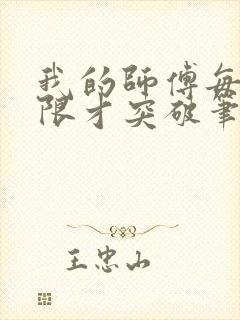 我的師傅每
限才突破筆
王忠山